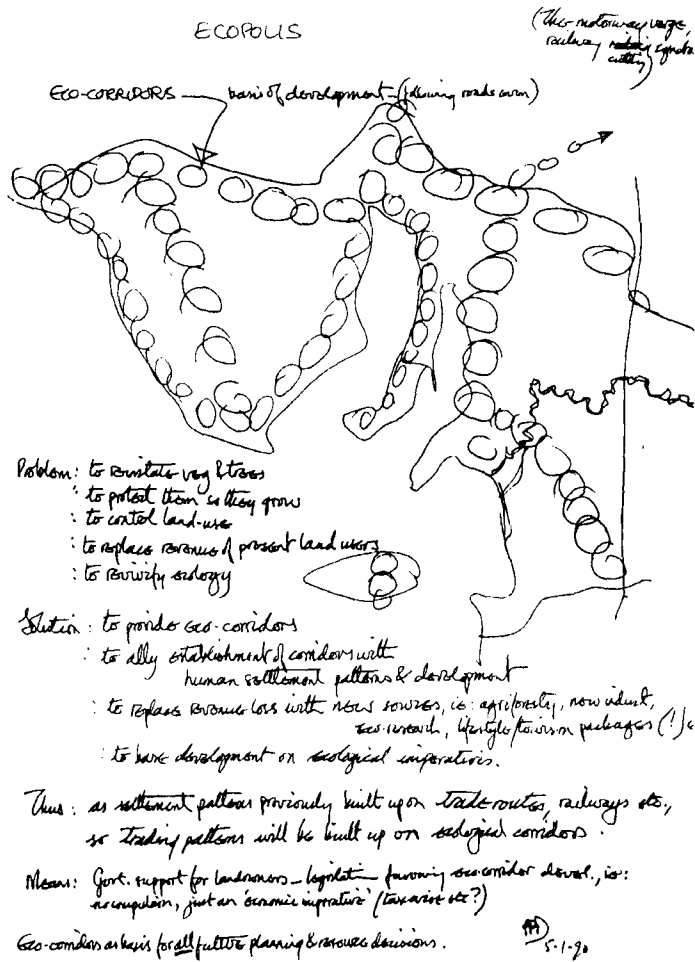 ECOPOLIS
(Thro motorway verge,
railway
cutting)
ECO-CORRIDORS basis of development (following roads even)
Problem: to reinstate veg & trees
: to protect them so they grow
: to control land-use
: to replace revenue of present land users
: to revivify ecology
Solution: to provide eco-corridors
: to ally establishment of corridors with
human settlement patterns & development
: to replace revenue loss with new sources, ie: agriforestry, new indust,
eco-research, lifestyle/tourism packages (!) e
: to base development on ecological imperatives.
Thus: as settlement patterns previously built upon trade routes, railways etc.,
so trading patterns will be built up on ecological corridors.
Means: Govt. support for landowners – legislation favouring eco-corridor devel., ie:
no compulsion, just an 'economic imperative' (taxwise etc?)
Eco-corridors as basis for all future planning & resource decisions.
5-1-90